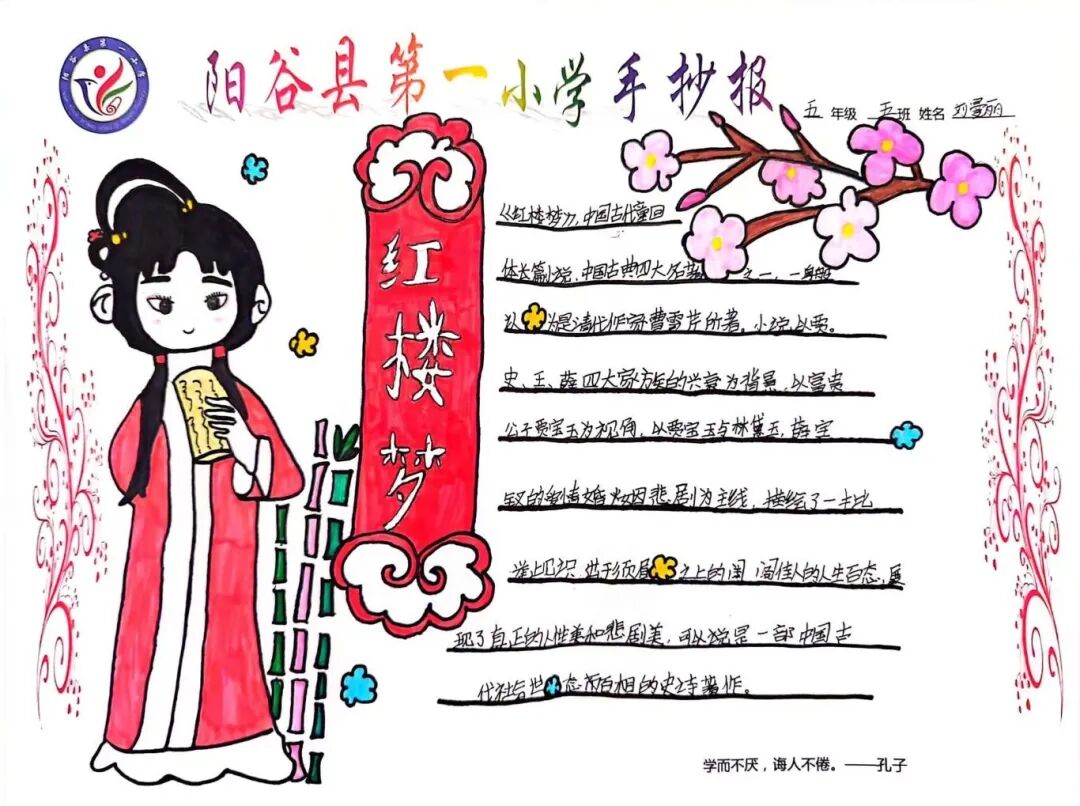 阳谷县第一小学
阳谷县第一小学手抄报
五 年级 五 班 姓名 刘曼丽
红楼梦
《红楼梦》，中国古代章回
体长篇小说，中国古典四大名著之一，一般
认为是清代作家曹雪芹所著。小说以贾。
史、王、薛四大家族的兴衰为背景，以富贵
公子贾宝玉为视角，以贾宝玉与林黛玉，薛宝
钗的 婚姻悲剧为主线，描绘了一
之上的闺阁佳人的人生百态，展
现了真正的人性美和悲剧美，可以说是一部中国古
代社会世态百相的史诗著作。
学而不厌，诲人不倦。——孔子